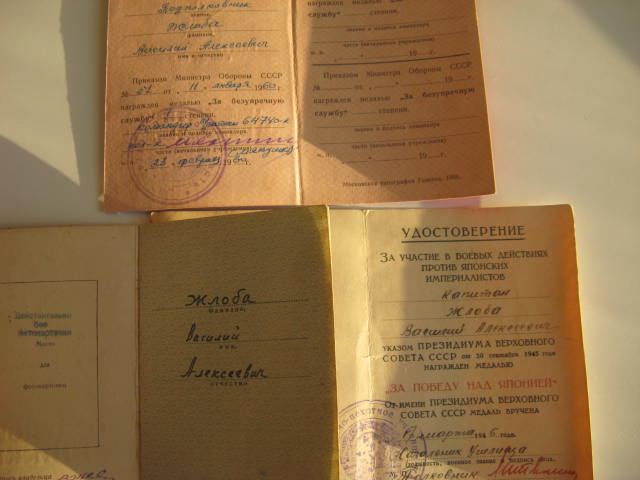 Подполковник
звание
Жлоба
фамилия,
Василий Алексеевич
имя и отчество
Приказом Министра Обороны СССР
№ 51 от „ 11 " января 1960 г.
награжден медалью „За безупречную
службу" степени.
Командир части 64740-к
части (начальник учреждения)
„ 23 " февраля
награжден медалью „За безупречную
службу" степени.
звание и подпись командира
части (начальника учреждения)
м. п. 19 г.
Приказом Министра Обороны СССР
№ от „ " 19 г.
награжден медалью „За безупречную
службу" степени.
звание и подпись командира
части (начальника учреждения)
19 г.
Московская типография Гознака.
Действительно
без
фотокарточки
Место
для
фотокарточки
владельца
Жлоба
фамилия,
Василий
имя,
Алексеевич
отчество
УДОСТОВЕРЕНИЕ
ЗА УЧАСТИЕ В БОЕВЫХ ДЕЙСТВИЯХ
ПРОТИВ ЯПОНСКИХ
ИМПЕРИАЛИСТОВ
капитан
Жлоба
Василий Алексеевич
УКАЗОМ ПРЕЗИДИУМА ВЕРХОВНОГО
СОВЕТА СССР от 30 сентября 1945 года
НАГРАЖДЕН МЕДАЛЬЮ
"ЗА ПОБЕДУ НАД ЯПОНИЕЙ"
ОТ ИМЕНИ ПРЕЗИДИУМА ВЕРХОВНОГО
СОВЕТА СССР МЕДАЛЬ ВРУЧЕНА
марта 1946 года.
Начальник Училища
(должность, военное звание и подпись лица,
Полковник